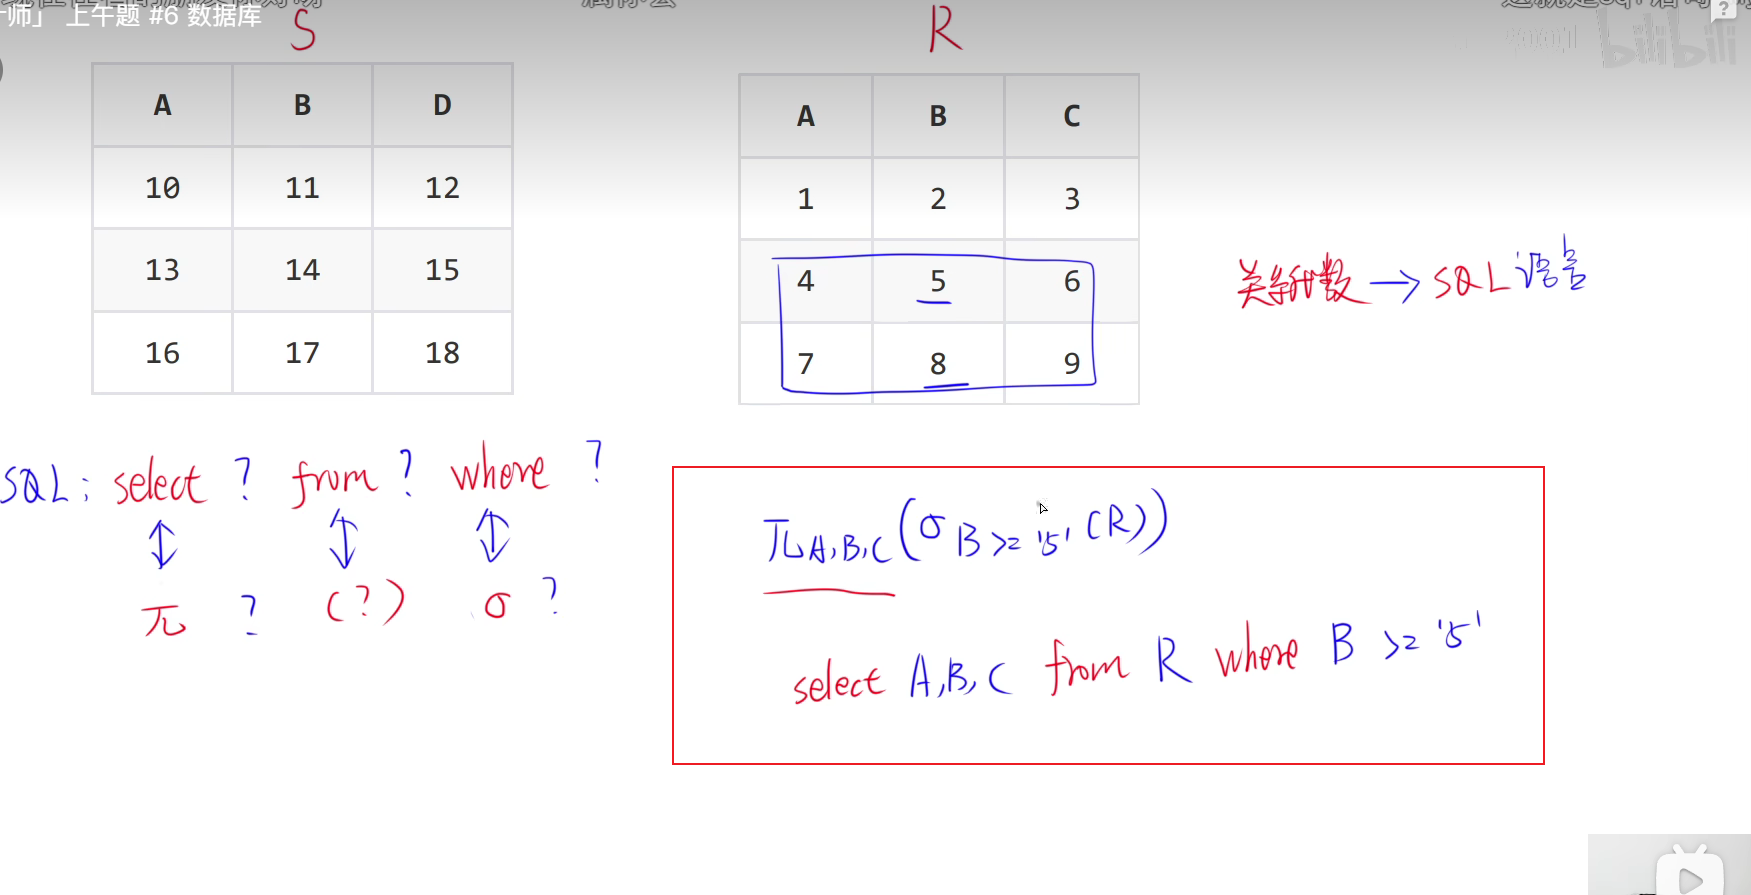 师」 上午题 #6 数据库
bilibili
S
A B D
10 11 12
13 14 15
16 17 18
R
A B C
1 2 3
4 5 6
7 8 9
关系代数 → SQL 语言
SQL: select ? from ? where ?
π ? (?) σ ?
π A,B,C (σ B >= '5' (R))
select A,B,C from R where B >= '5'